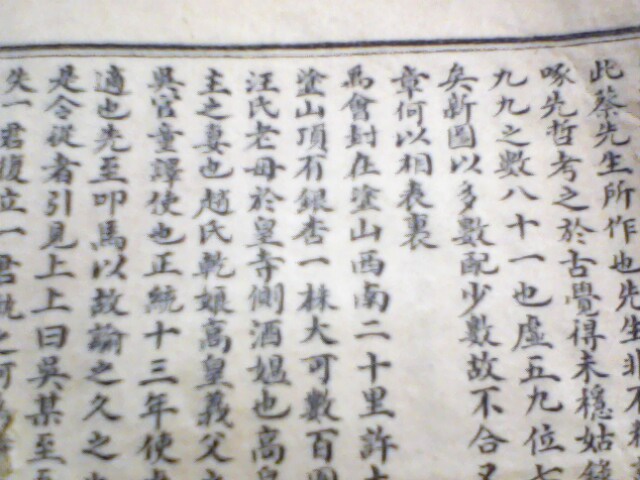 此蔡先生所作也先生非不
啄先哲考之於古覺得未穩姑錄
九九之數八十一也虛五九位七
矣新圖以多數配少數故不合又
章何以相表裏
禹會封在塗山西南二十里許
塗山項有銀杏一株大可數百圍
汪氏老母於皇寺側酒媼也高皇
主之妻也趙氏乾娘高皇義父之
吳官童譯使也正統十三年使
適也先至叩馬以故諭之久之
是令從者引見上上曰吳某至
失一君復立一君